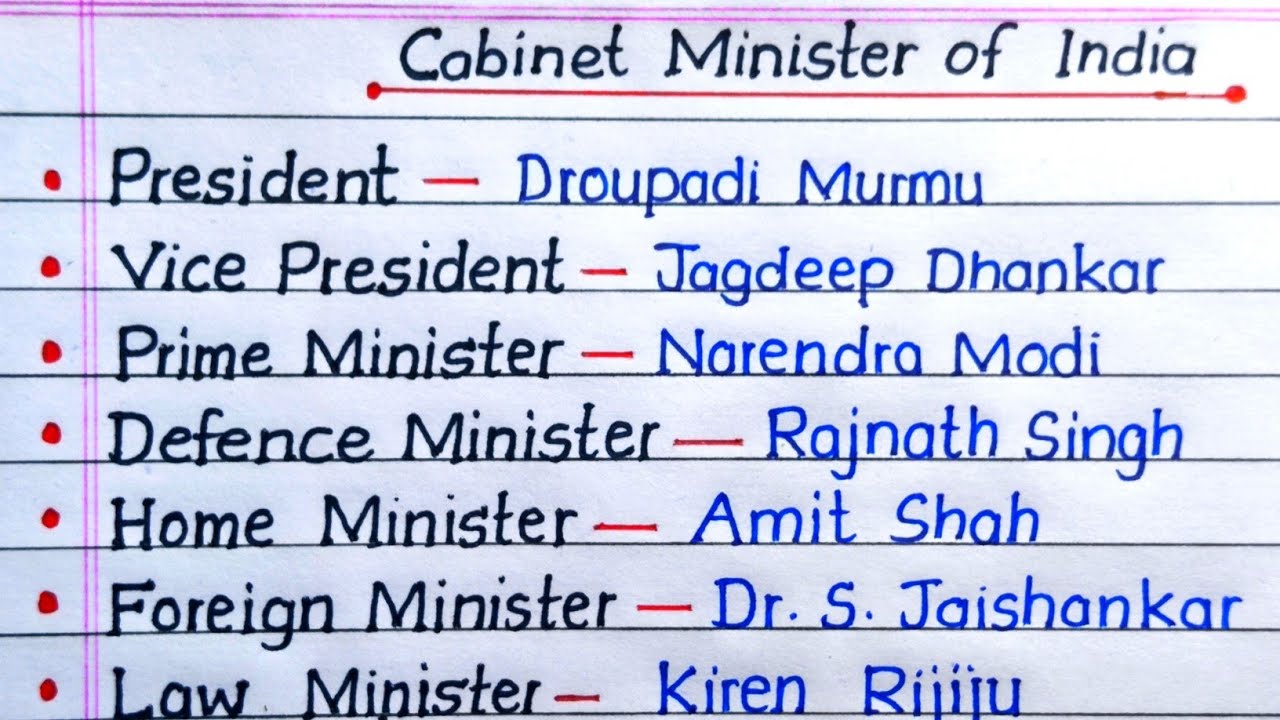 Cabinet Minister of India
• President — Droupadi Murmu
• Vice President — Jagdeep Dhankar
• Prime Minister — Narendra Modi
• Defence Minister — Rajnath Singh
• Home Minister — Amit Shah
• Foreign Minister — Dr. S. Jaishankar
• Law Minister — Kiren Rijiju